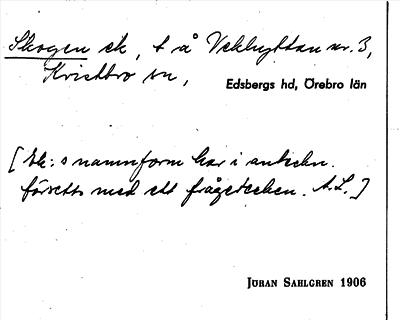 Skogen ek, t å Vekhyttan nr. 3,
Kvistbro sn,
Edsbergs hd, Örebro län
[Ek:s namnform har i anteckn.
försetts med ett frågetecken. A.L.]
JÖRAN SAHLGREN 1906